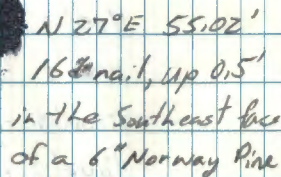 N 27°E 55.02'
16d nail, up 0.5'
in the Southeast face
of a 6" Norway Pine